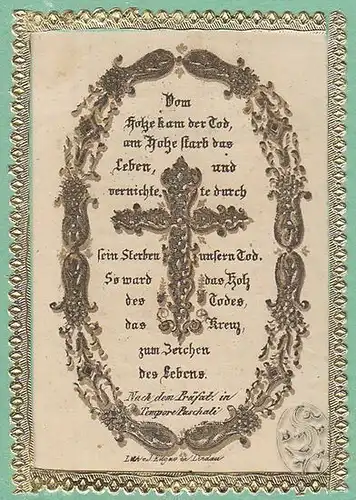 Vom
Holze kam der Tod,
am Holze starb das
Leben, und
vernichte te durch
sein Sterben unsern Tod.
So ward das Holz
des Todes,
das Kreuz,
zum Zeichen
des Lebens.
Nach dem Präfat: in
Tempore Paschali
Lith. v. J. in Lindau